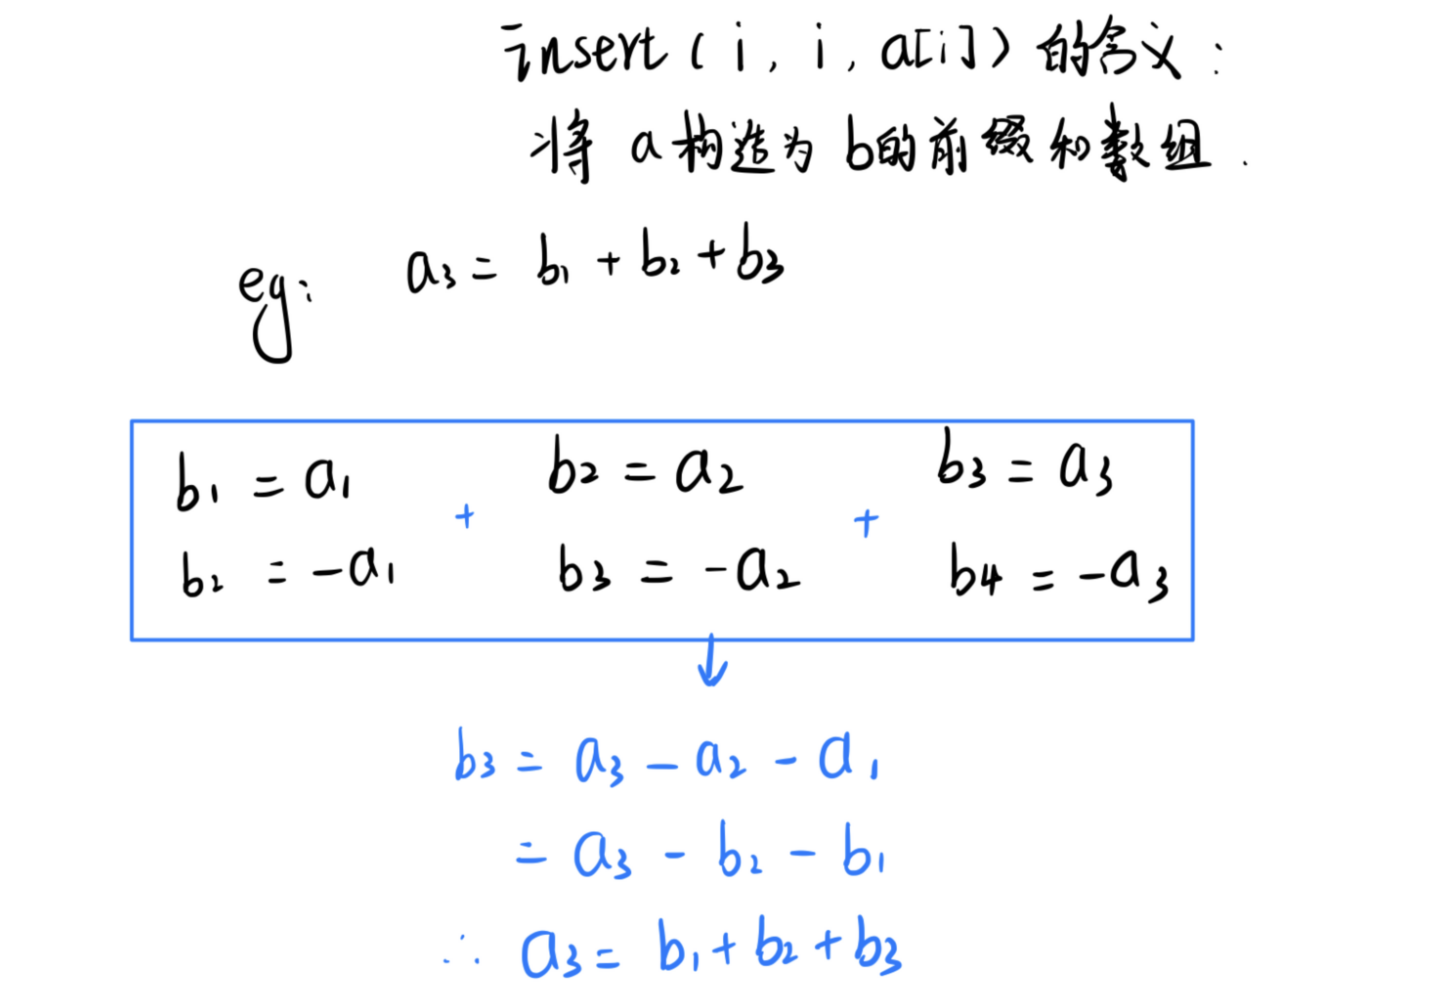 insert ( i , i , a[i] ) 的含义 :
将 a 构造为 b的前缀和数组 .
eg: a₃ = b₁ + b₂ + b₃
b₁ = a₁ + b₂ = a₂ + b₃ = a₃
b₂ = -a₁ b₃ = -a₂ b₄ = -a₃
↓
b₃ = a₃ - a₂ - a₁
= a₃ - b₂ - b₁
∴ a₃ = b₁ + b₂ + b₃